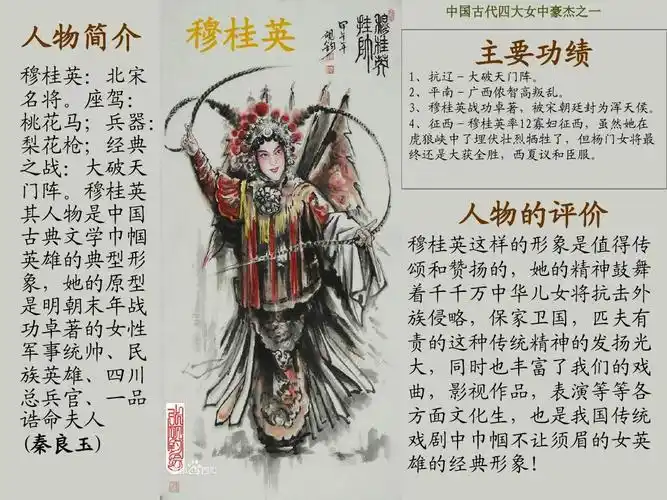 中国古代四大女中豪杰之一
人物简介
穆桂英：北宋
名将。座驾：
桃花马；兵器：
梨花枪；经典
之战：大破天
门阵。穆桂英
其人物是中国
古典文学巾帼
英雄的典型形
象，她的原型
是明朝末年战
功卓著的女性
军事统帅、民
族英雄、四川
总兵官、一品
诰命夫人
(秦良玉)
穆桂英
穆桂英
挂帅
甲午年
主要功绩
1、抗辽－大破天门阵。
2、平南－广西侬智高叛乱。
3、穆桂英战功卓著，被宋朝廷封为浑天侯。
4、征西－穆桂英率12寡妇征西，虽然她在
虎狼峡中了埋伏壮烈牺牲了，但杨门女将最
终还是大获全胜，西夏议和臣服。
人物的评价
穆桂英这样的形象是值得传
颂和赞扬的，她的精神鼓舞
着千千万中华儿女将抗击外
族侵略，保家卫国，匹夫有
责的这种传统精神的发扬光
大，同时也丰富了我们的戏
曲，影视作品，表演等等各
方面文化生，也是我国传统
戏剧中巾帼不让须眉的女英
雄的经典形象！